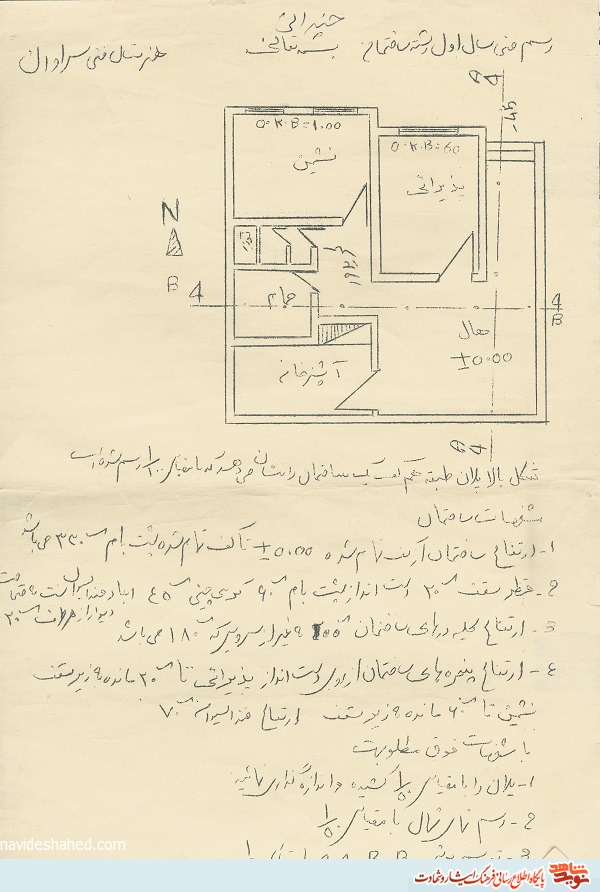 جغرافی
رسم فنی سال اول رشته ساختمان
بسمه تعالی
هنرستان فنی سراوان
A
4
-45
O.K.B=1.00
نشیمن
O.K.B=60
پذیرائی
N
B 4
حمام
راهرو
4
B
هال
±0.00
آشپزخانه
4
شکل بالا پلان طبقه هم کف یک ساختمان را نشان می دهد که با مقیاس ۱/۱۰۰ رسم شده است
مشخصات ساختمان
۱- ارتفاع ساختمان از کف تمام شده ±0.00 تا کف تمام شده پشت بام ۳۳۰ می باشد
۲- قطر سقف ۳۰ دست انداز پشت بام ۶۰ کرسی چینی ۴۵
دیوار از هر طرف ۳۰
۳- ارتفاع کلیه درهای ساختمان ۲۰۰ بغیر از سرویس که ۱۸۰ می باشد
۴- ارتفاع پنجره های ساختمان از روی دست انداز پذیرائی تا ۲۰ مانده به زیر سقف
نشیمن تا ۶۰ مانده به زیر سقف ارتفاع ۷۰
با مشخصات فوق مطلوبست
۱- پلان را با مقیاس ۱/۵۰ کشیده و اندازه گذاری نمائید
۲- رسم نمای شمال با مقیاس ۱/۵۰
navideshahed.com
پایگاه اطلاع رسانی فرهنگ ایثار و شهادت
نوید شاهد